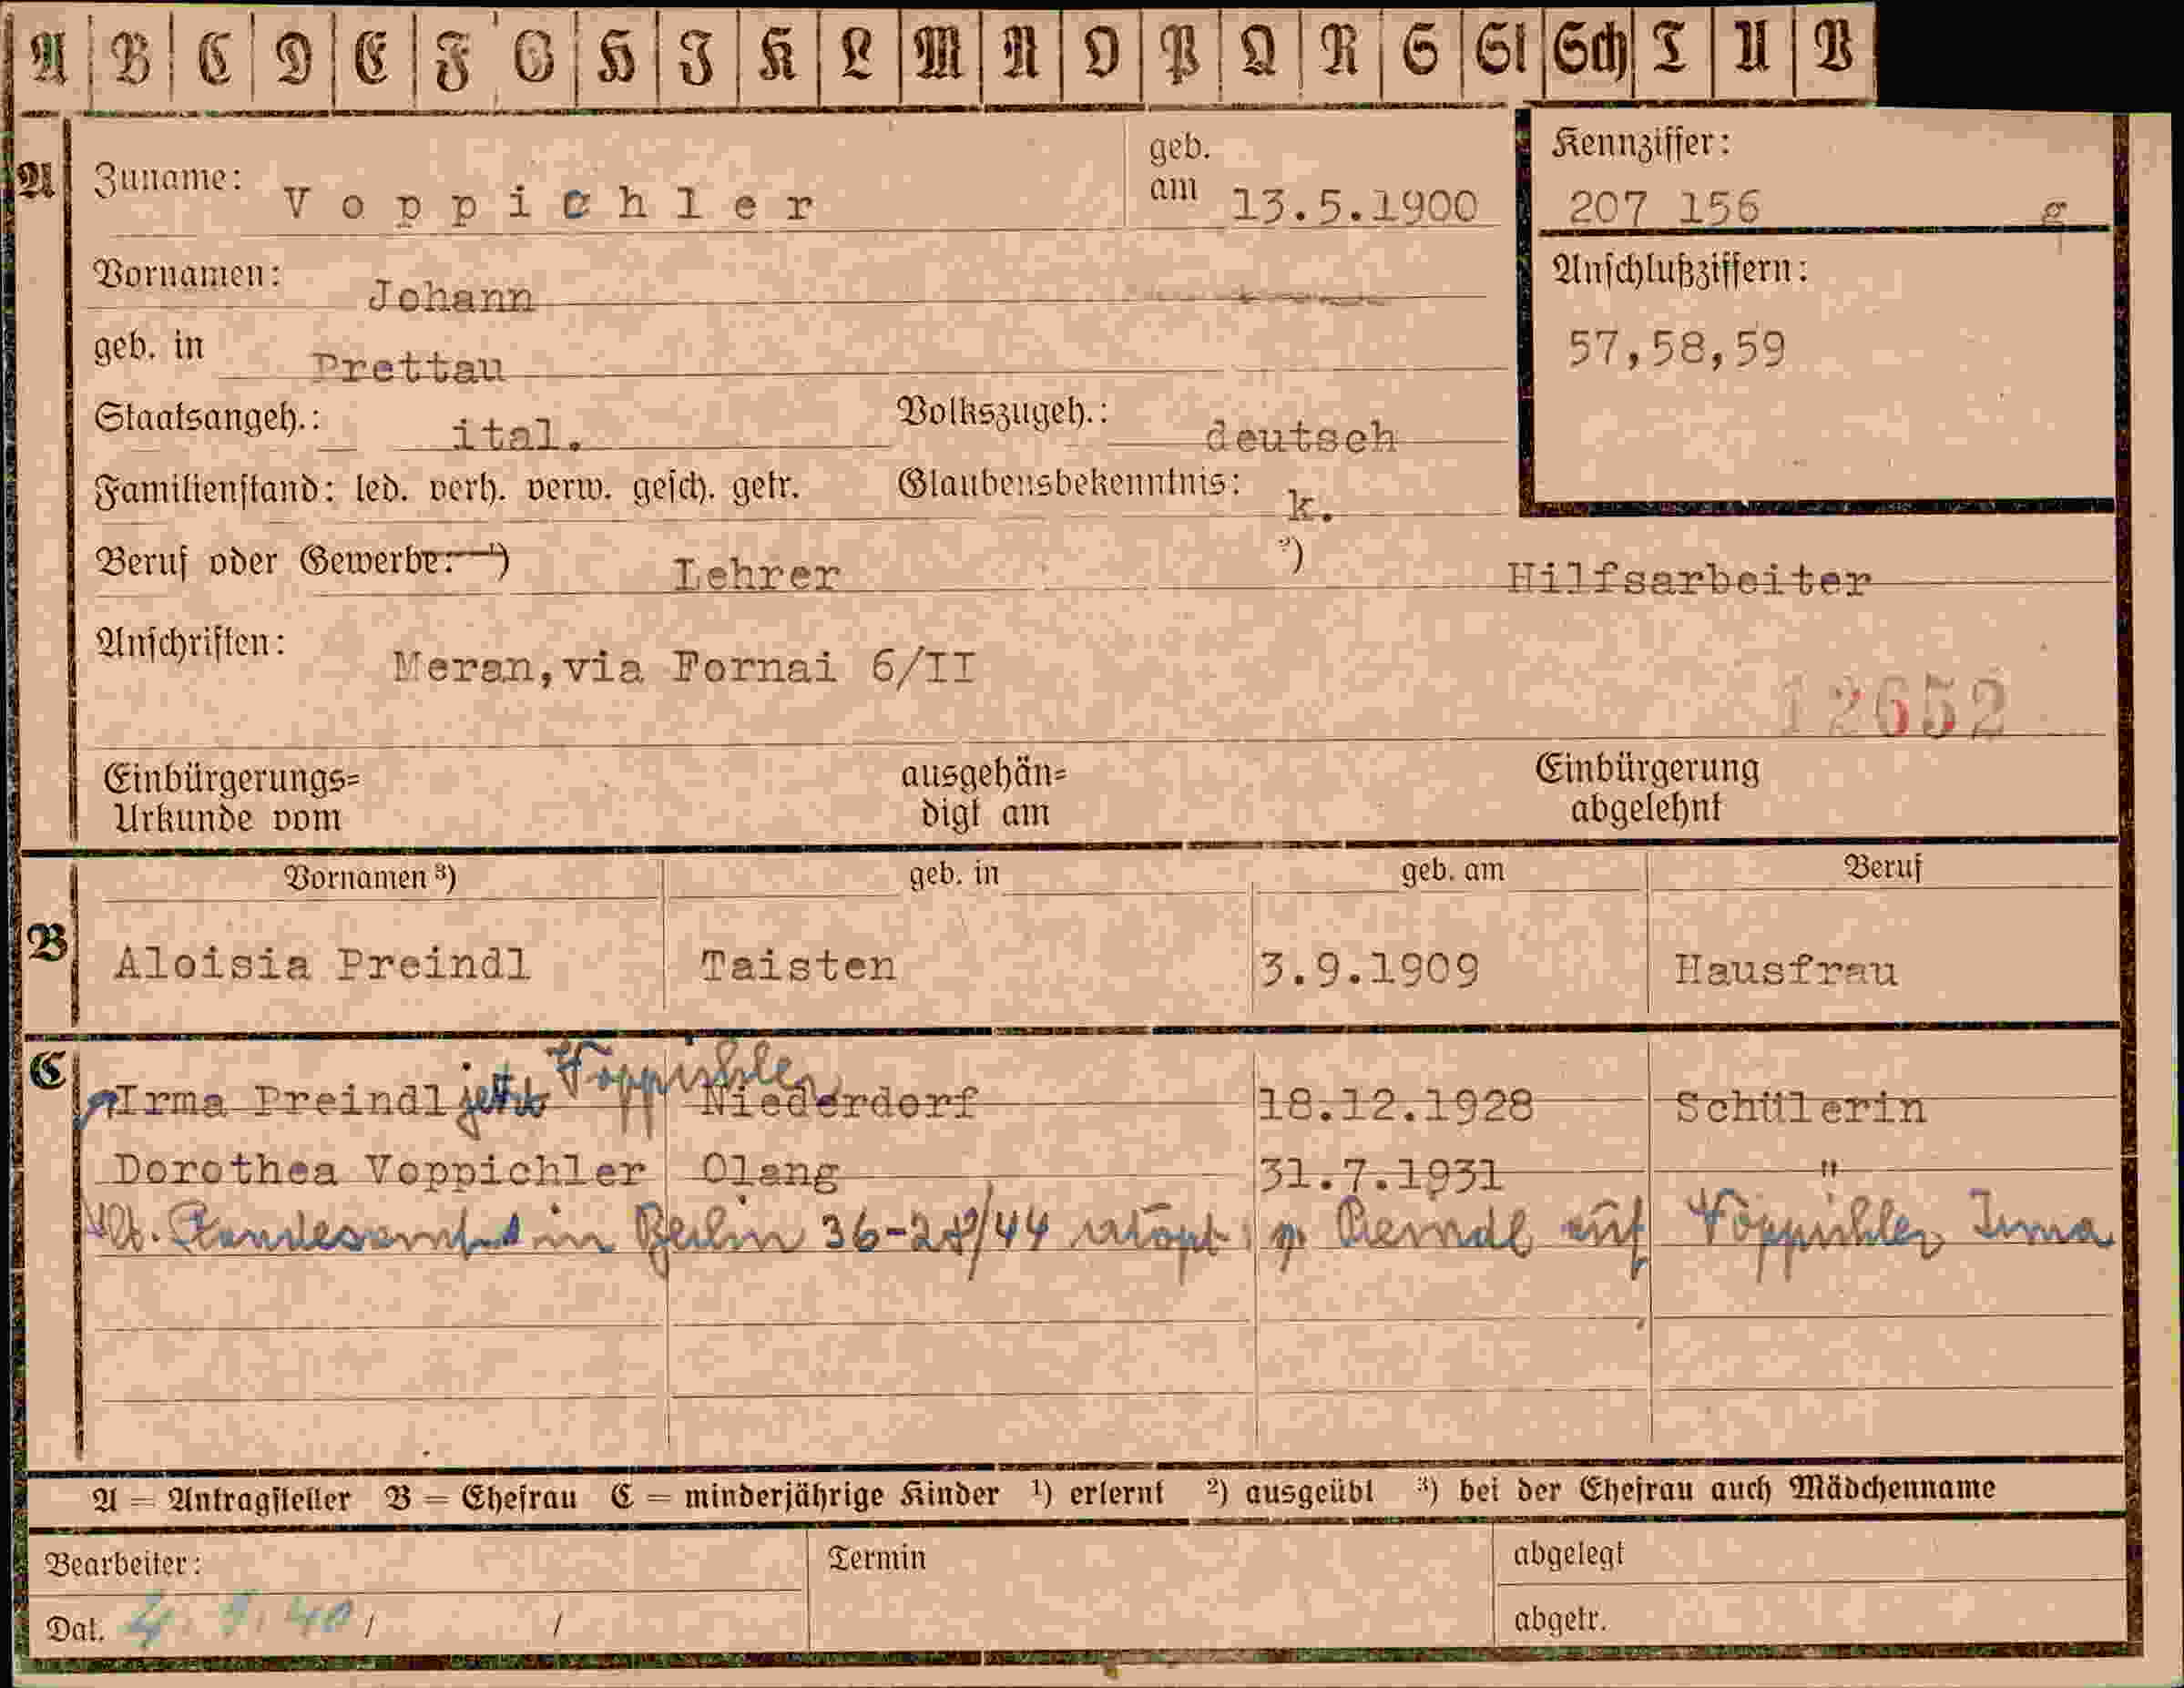 A B C D E F G H I K L M N O P Q R S St Sch T U V
A
Zuname: Voppichler
geb. am 13.5.1900
Kennziffer:
207 156 g
Vornamen: Johann
Anschlußziffern:
57,58,59
geb. in Prettau
Staatsangeh.: ital. Volkszugeh.: deutsch
Familienstand: led. verh. verw. gesch. getr. Glaubensbekenntnis: k.
Beruf oder Gewerbe: ¹) Lehrer ²) Hilfsarbeiter
Anschriften: Meran,via Fornai 6/II
12652
Einbürgerungs= ausgehän= Einbürgerung
Urkunde vom digt am abgelehnt
Vornamen ³) geb. in geb. am Beruf
B
Aloisia Preindl Taisten 3.9.1909 Hausfrau
C
Irma Preindl jetzt Voppichler Niederdorf 18.12.1928 Schülerin
Dorothea Voppichler Olang 31.7.1931 "
Standesamt in Berlin Preindl auf Voppichler Irma
A = Antragsteller B = Ehefrau C = minderjährige Kinder ¹) erlernt ²) ausgeübt ³) bei der Ehefrau auch Mädchenname
Bearbeiter: Termin abgelegt
Dat. 4. 5. 40 / / abgetr.